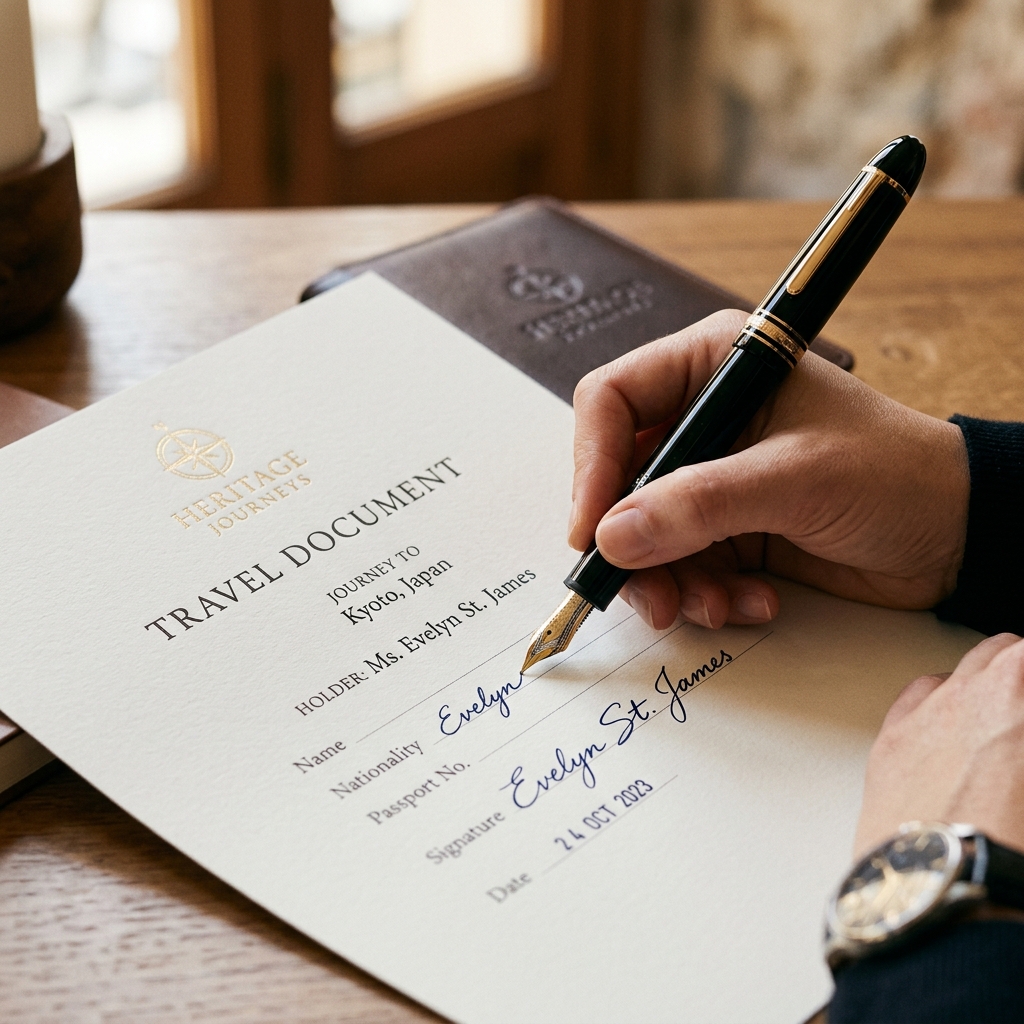 HERITAGE
JOURNEYS
HERITAGE
JOURNEYS
TRAVEL DOCUMENT
JOURNEY TO
Kyoto, Japan
HOLDER: Ms. Evelyn St. James
Name
Nationality Evelyn
Passport No.
Signature Evelyn St. James
Date 24 OCT 2023